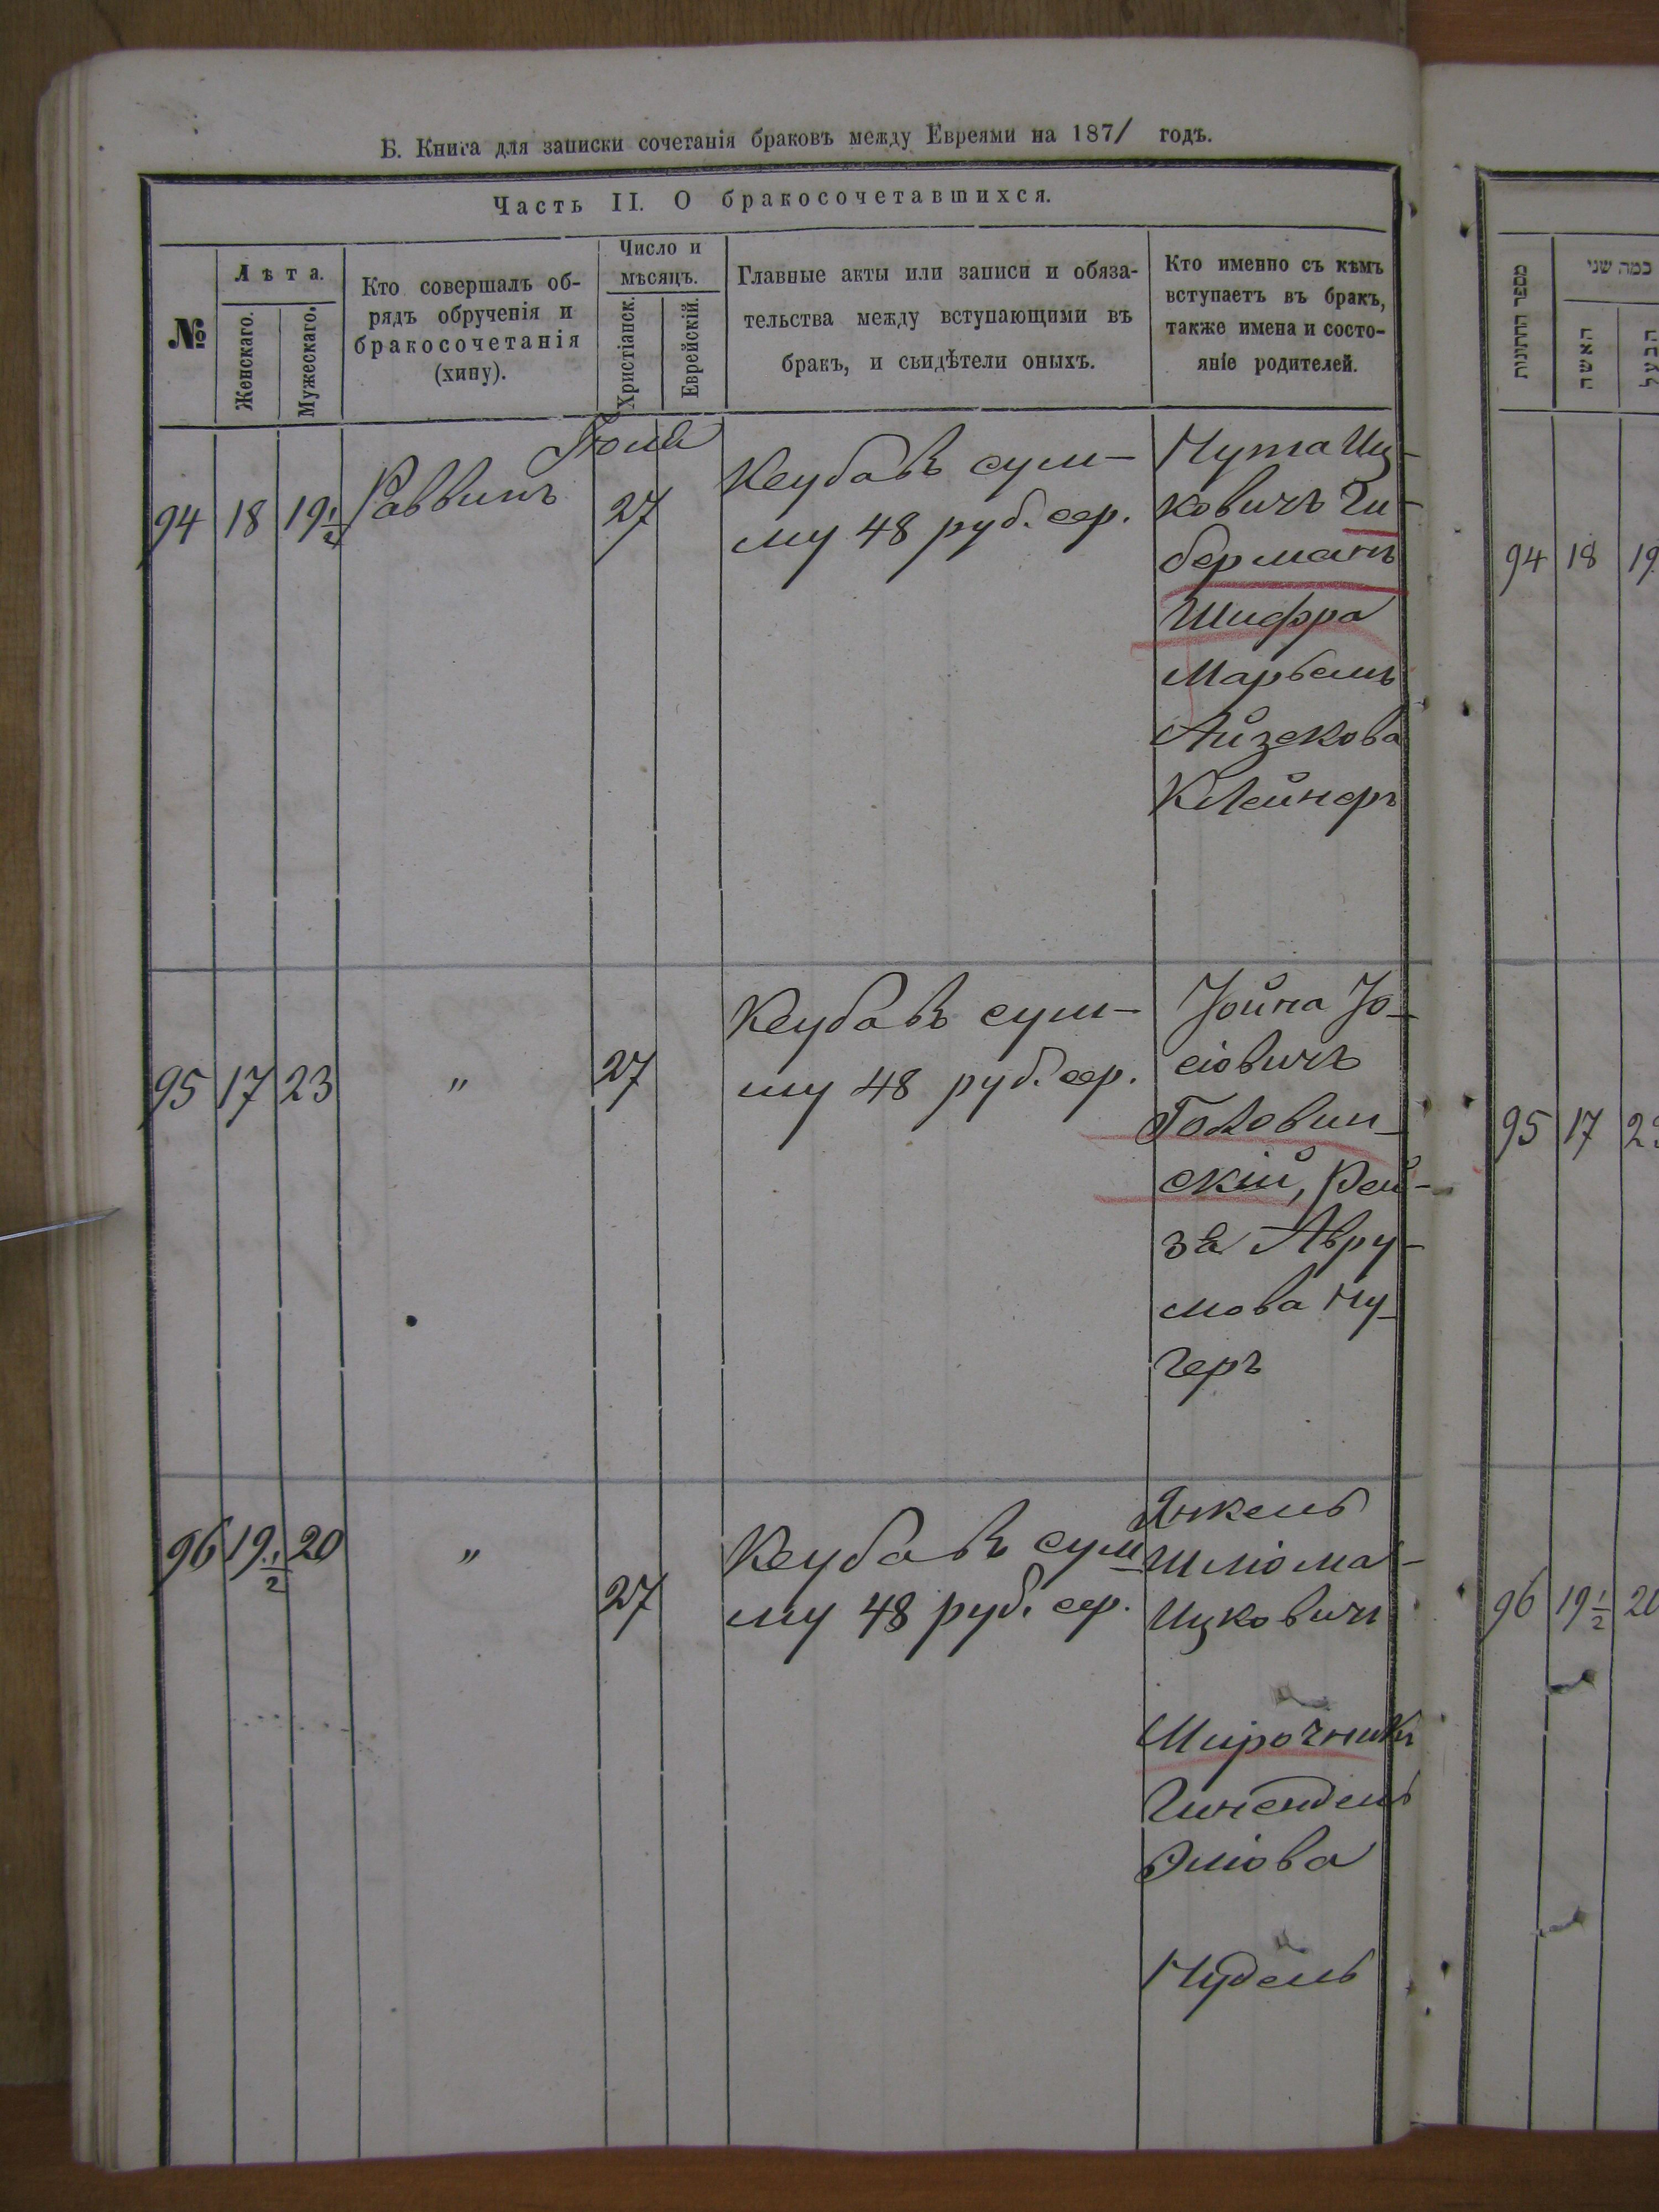 Б. Книга для записки сочетанія браковъ между Евреями на 1871 годъ.
Часть II. О бракосочетавшихся.
№
Лѣта.
Женскаго.
Мужескаго.
Кто совершалъ об-
рядъ обрученія и
бракосочетанія
(хипу).
Число и
мѣсяцъ.
Христіанск.
Еврейскій.
Главные акты или записи и обяза-
тельства между вступающими въ
бракъ, и свидѣтели оныхъ.
Кто именно съ кѣмъ
вступаетъ въ бракъ,
также имена и состо-
яніе родителей.
94 18 19½ Раввинъ
27
Кеубавъ сум-
му 48 руб. сер.
Нута Иц-
ковичъ Ги-
берманъ
Шифра
Марьемъ
Айзекова
Клейнеръ
95 17 23 " 27
Кеубавъ сум-
му 48 руб. сер.
Іойна Іо-
сіовичъ
Головин-
скій, Рей-
за Авру-
мова Ну-
геръ
96 19½ 20 "
27
Кеубавъ сум-
му 48 руб. сер.
Янкель
Шліома-
Ицковичъ
Мирочникъ
Гинендель
Эліова
Нудель
מספר החתונות
כמה שני
האשה
הבעל
94 18 19
95 17 23
96 19½ 20